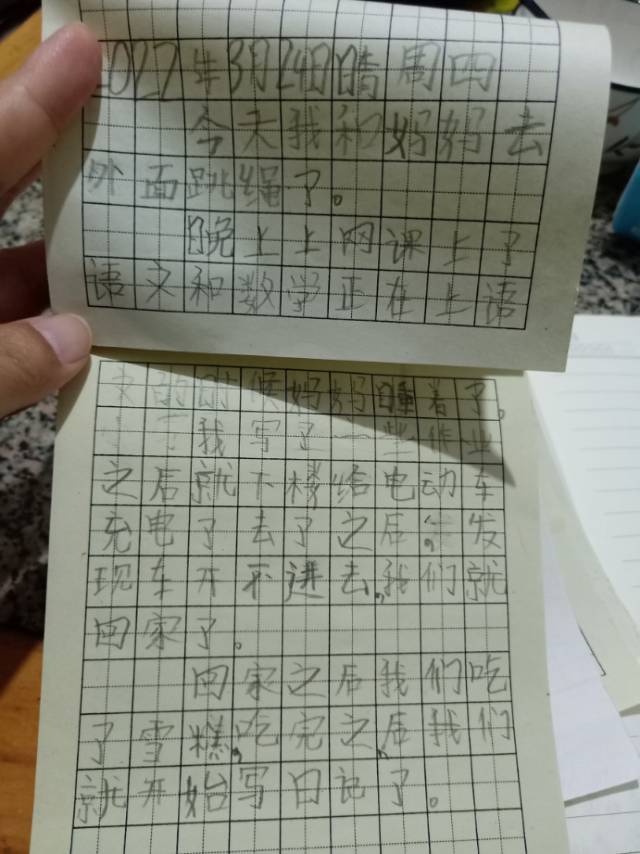 2022年3月24日晴周四
今天我和妈妈去
外面跳绳了。
晚上上网课上了
语文和数学正在上语
文的时候妈妈睡着了。
我写了一些作业
之后就下楼给电动车
充电了去了之后,发
现车开不进去,我们就
回家了。
回家之后我们吃
了雪糕,吃完之后,我们
就开始写日记了。